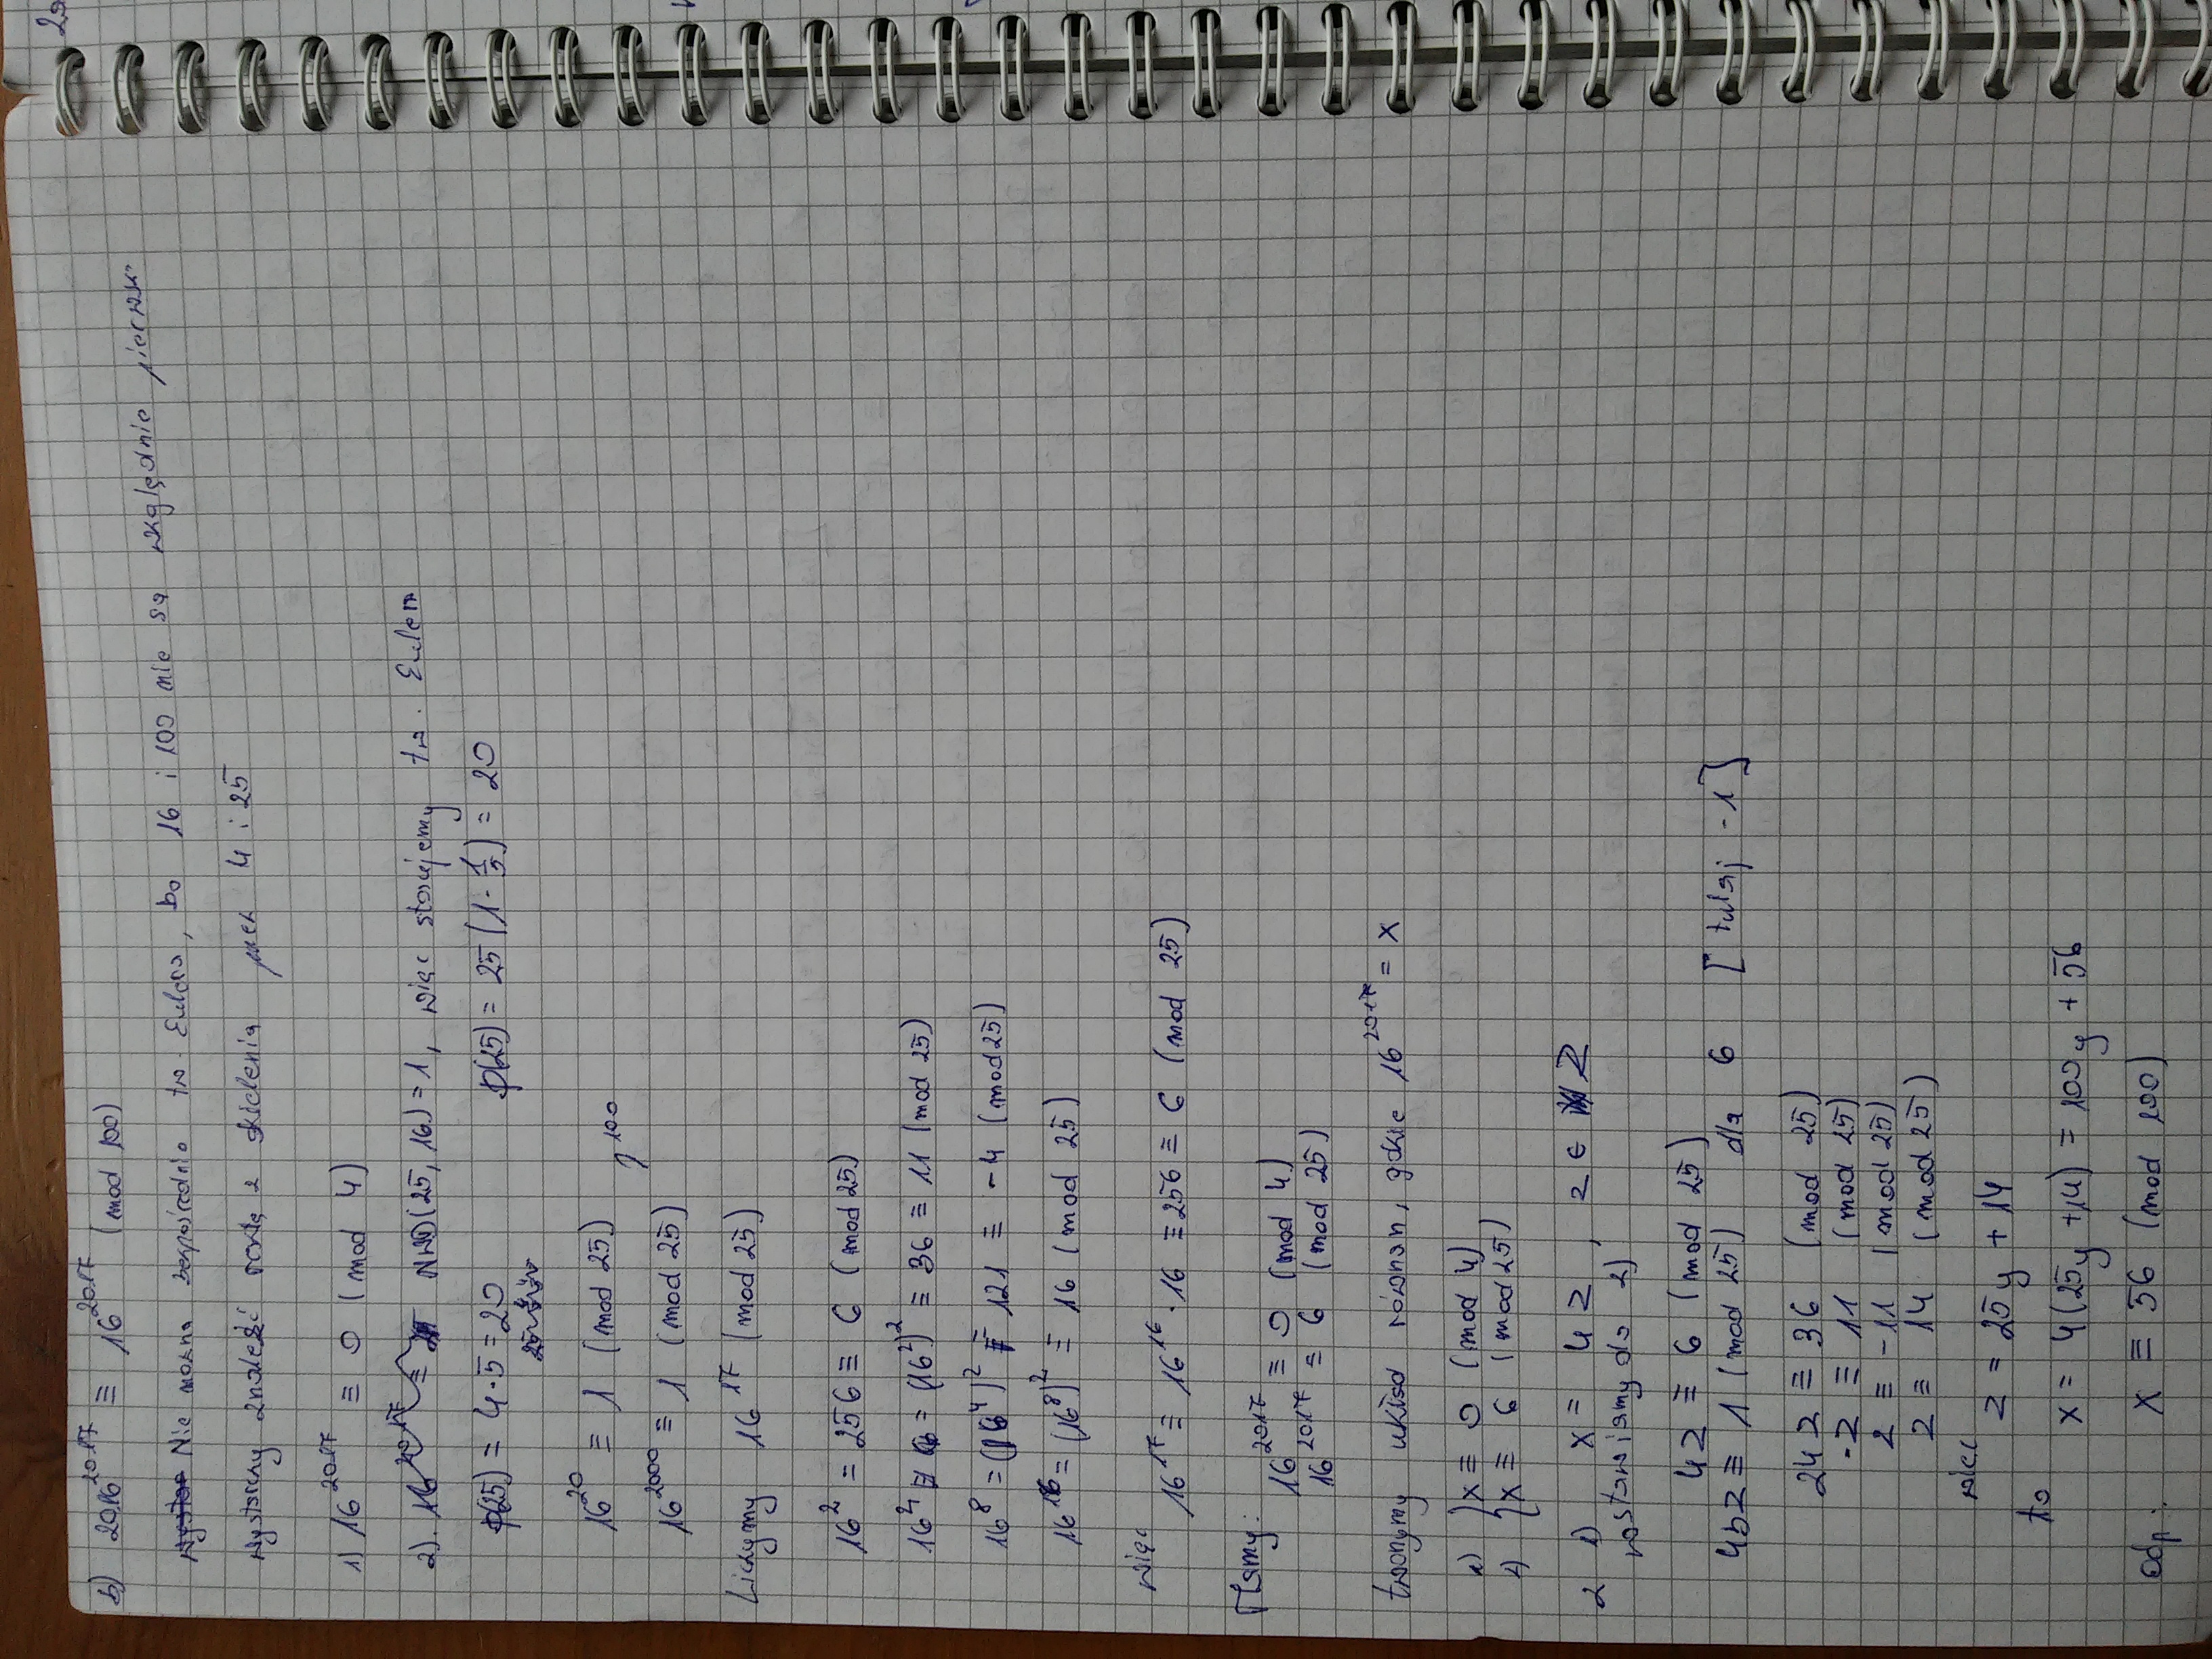 b) 2016^2017 ≡ 16^2017 (mod 100)
Nie można bezpośrednio tw. Eulera, bo 16 i 100 nie są względnie pierwsz.
wystarczy znaleźć resztę z dzielenia przez 4 i 25
1) 16^2017 ≡ 0 (mod 4)
2). NWD(25, 16) = 1, więc stosujemy tw. Eulera
φ(25) = 4·5 = 20 φ(25) = 25(1 - 1/5) = 20
16^20 ≡ 1 (mod 25)
)^100
16^2000 ≡ 1 (mod 25)
Liczymy 16^17 (mod 25)
16^2 = 256 ≡ 6 (mod 25)
16^4 = (16^2)^2 ≡ 36 ≡ 11 (mod 25)
16^8 = (16^4)^2 ≡ 121 ≡ -4 (mod 25)
16^16 = (16^8)^2 ≡ 16 (mod 25)
więc
16^17 ≡ 16^16 · 16 ≡ 256 ≡ 6 (mod 25)
Mamy:
16^2017 ≡ 0 (mod 4)
16^2017 ≡ 6 (mod 25)
tworzymy układ równań, gdzie 16^2017 = x
1) { x ≡ 0 (mod 4)
2) { x ≡ 6 (mod 25)
z 1) x = 4z , z ∈ Z
wstawiamy do 2)
4z ≡ 6 (mod 25)
4bz ≡ 1 (mod 25) dla 6 [tutaj -1]
24z ≡ 36 (mod 25)
-z ≡ 11 (mod 25)
z ≡ -11 (mod 25)
z ≡ 14 (mod 25)
więc
z = 25y + 14
to
x = 4(25y + 14) = 100y + 56
Odp: x ≡ 56 (mod 100)